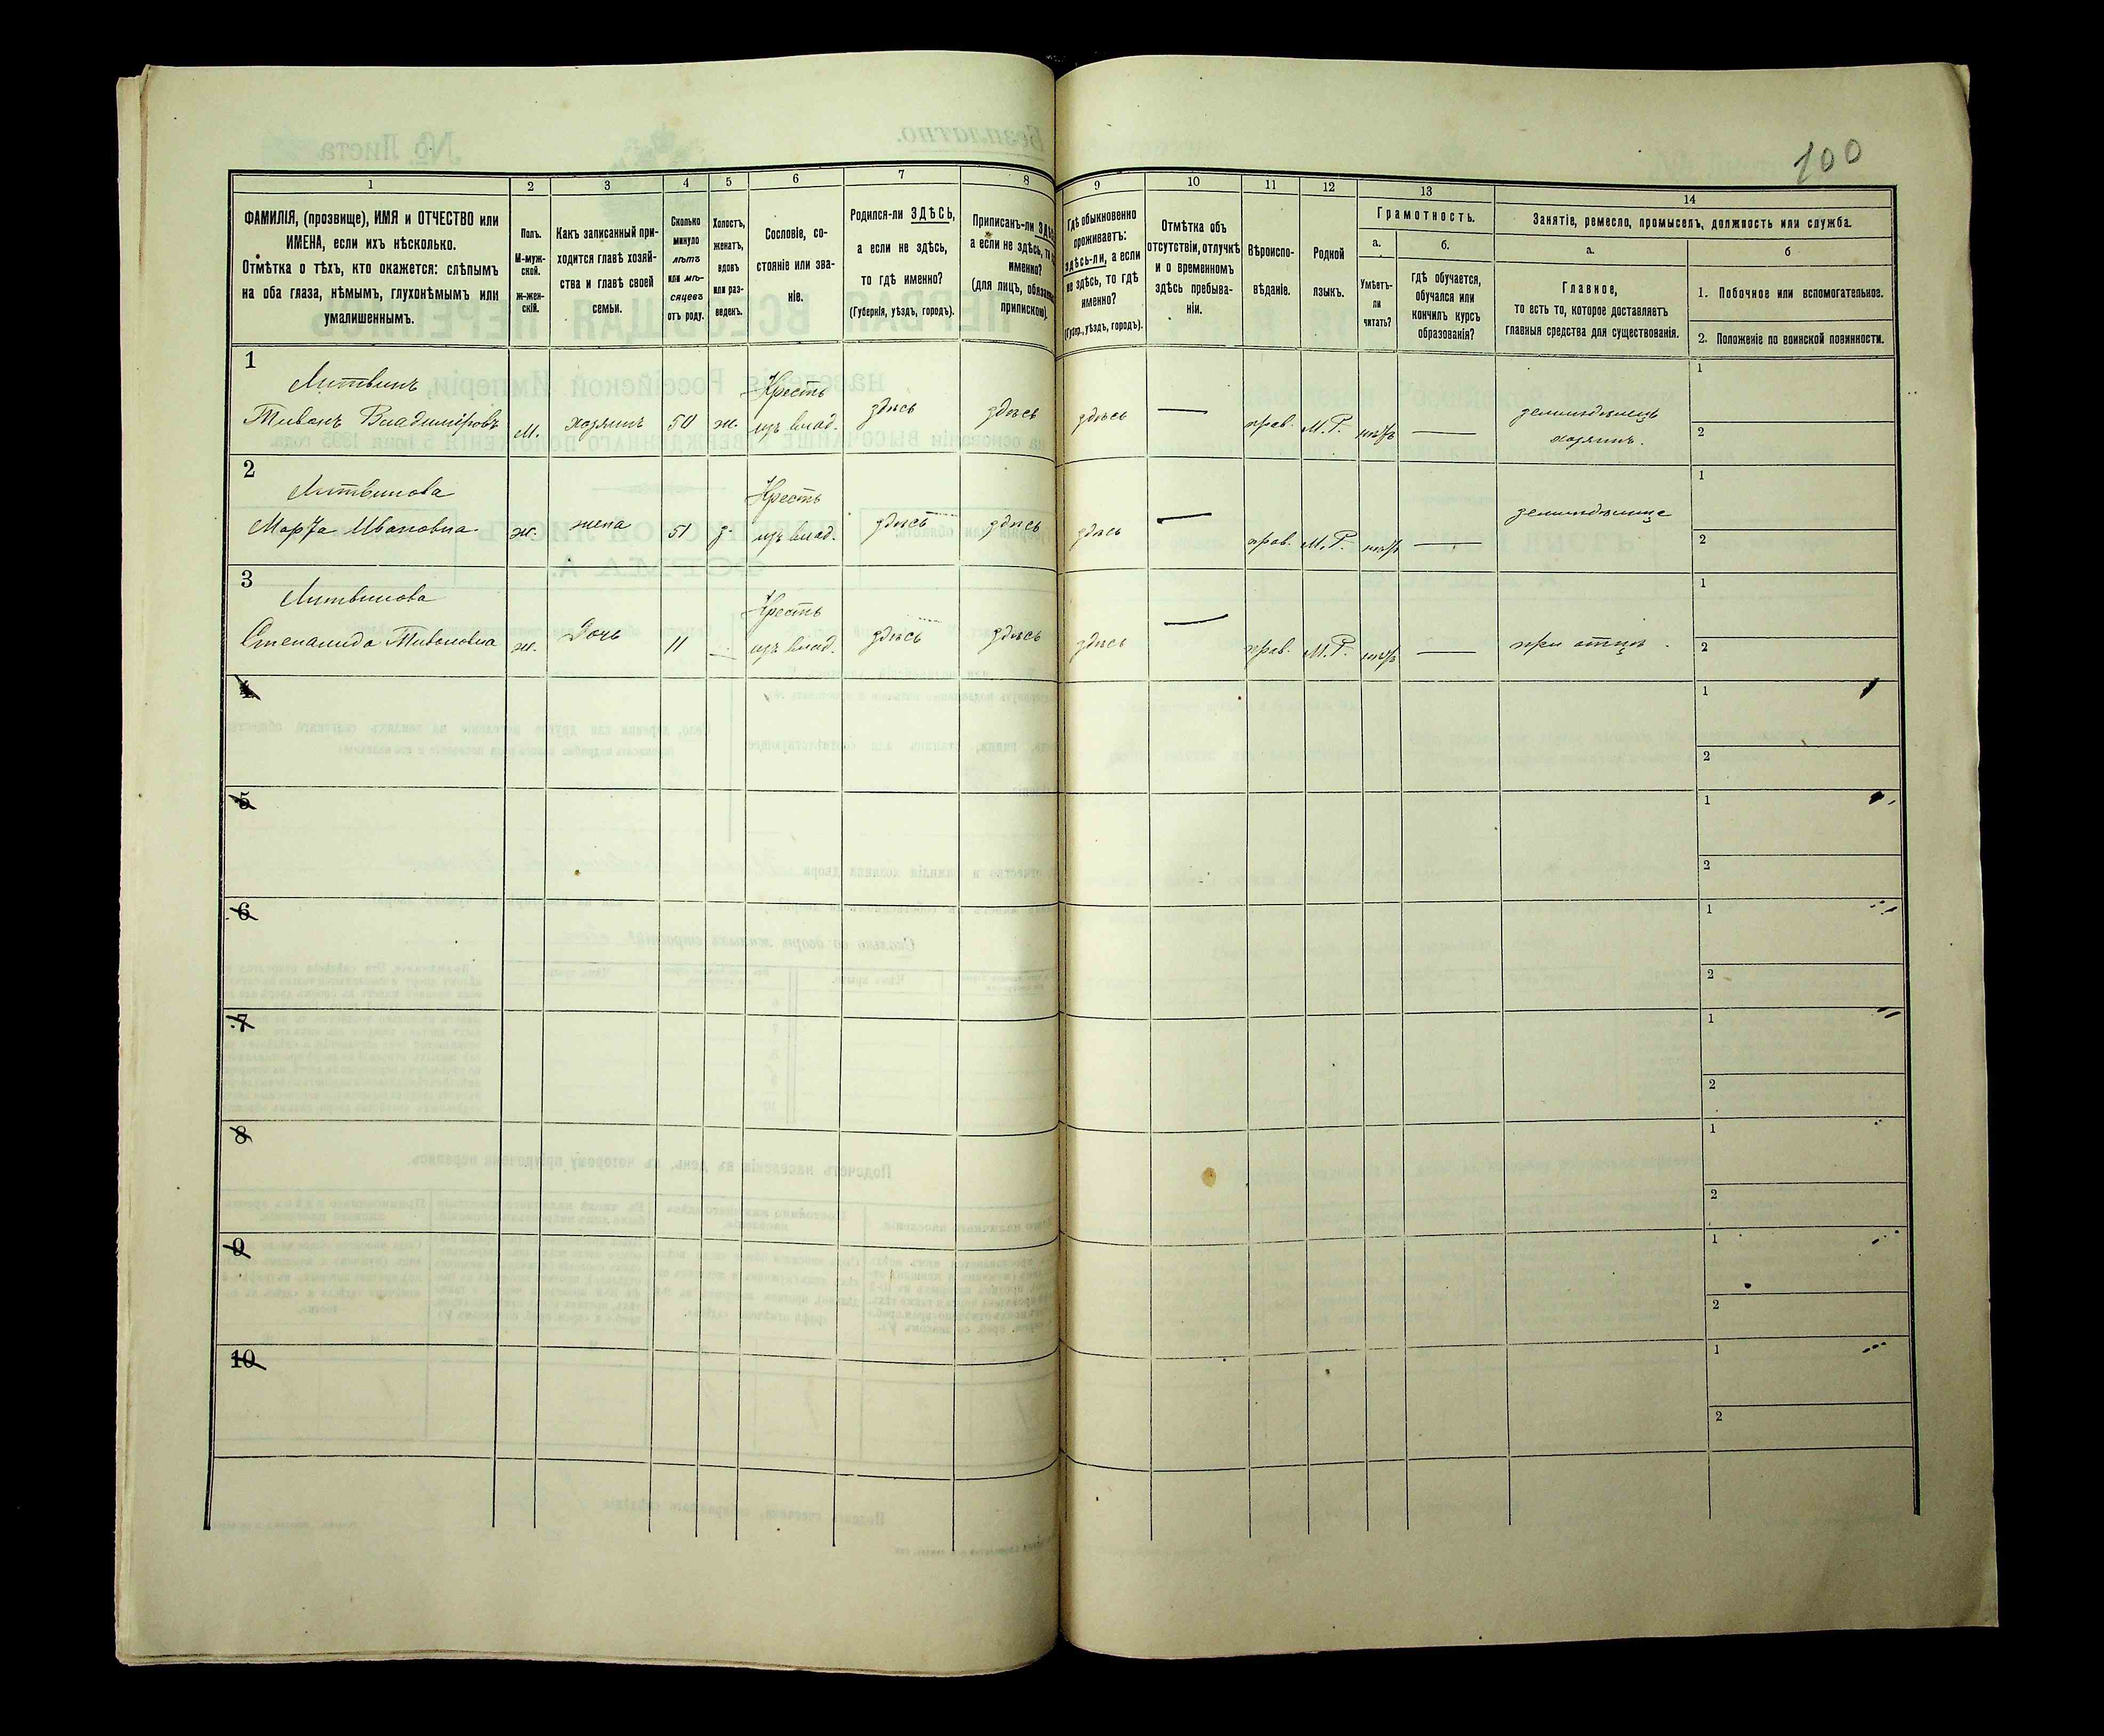 100
1
2
3
4
5
6
7
8
9
10
11
12
13
14
ФАМИЛІЯ, (прозвище), ИМЯ и ОТЧЕСТВО или
ИМЕНА, если ихъ нѣсколько.
Отмѣтка о тѣхъ, кто окажется: слѣпымъ
на оба глаза, нѣмымъ, глухонѣмымъ или
умалишеннымъ.
Полъ.
М-муж-
ской.
Ж-жен-
скій.
Какъ записанный при-
ходится главѣ хозяй-
ства и главѣ своей
семьи.
Сколько
минуло
лѣтъ
или мѣ-
сяцевъ
отъ роду.
Холостъ,
женатъ,
вдовъ
или раз-
веденъ.
Сословіе, со-
стояніе или зва-
ніе.
Родился-ли ЗДѢСЬ,
а если не здѣсь,
то гдѣ именно?
(Губернія, уѣздъ, городъ).
Приписанъ-ли
а если не здѣсь,
именно?
(для лицъ,
припискою).
Гдѣ обыкновенно
проживаетъ:
здѣсь-ли, а если
не здѣсь, то гдѣ
именно?
(Губер., уѣздъ, городъ).
Отмѣтка объ
отсутствіи, отлучкѣ
и о временномъ
здѣсь пребыва-
ніи.
Вѣроиспо-
вѣданіе.
Родной
языкъ.
Грамотность.
а.
Умѣетъ-
ли
читать?
б.
гдѣ обучается,
обучался или
кончилъ курсъ
образованія?
Занятіе, ремесло, промыселъ, должность или служба.
а.
Главное,
то есть то, которое доставляетъ
главныя средства для существованія.
б
1. Побочное или вспомогательное.
2. Положеніе по воинской повинности.
1
Литвинъ
Тивонъ Владиміровъ
м.
хозяинъ
50
ж.
Крестъ
изъ влад.
здѣсь
здѣсь
здѣсь
—
прав.
М.Р.
нѣтъ
—
земледѣлецъ
хозяинъ.
1
2
2
Литвинова
Марѳа Ивановна
ж.
жена
51
з
Крестъ
изъ влад.
здѣсь
здѣсь
здѣсь
—
прав.
М.Р.
нѣтъ
—
1
2
3
Литвинова
Степанида Тивоновна
ж.
Дочь
11
Крестъ
изъ влад.
здѣсь
здѣсь
здѣсь
—
прав.
М.Р.
нѣтъ
—
при отцѣ.
1
2
4
1
2
5
1
2
6
1
2
7
1
2
8
1
2
9
1
2
10
1
2